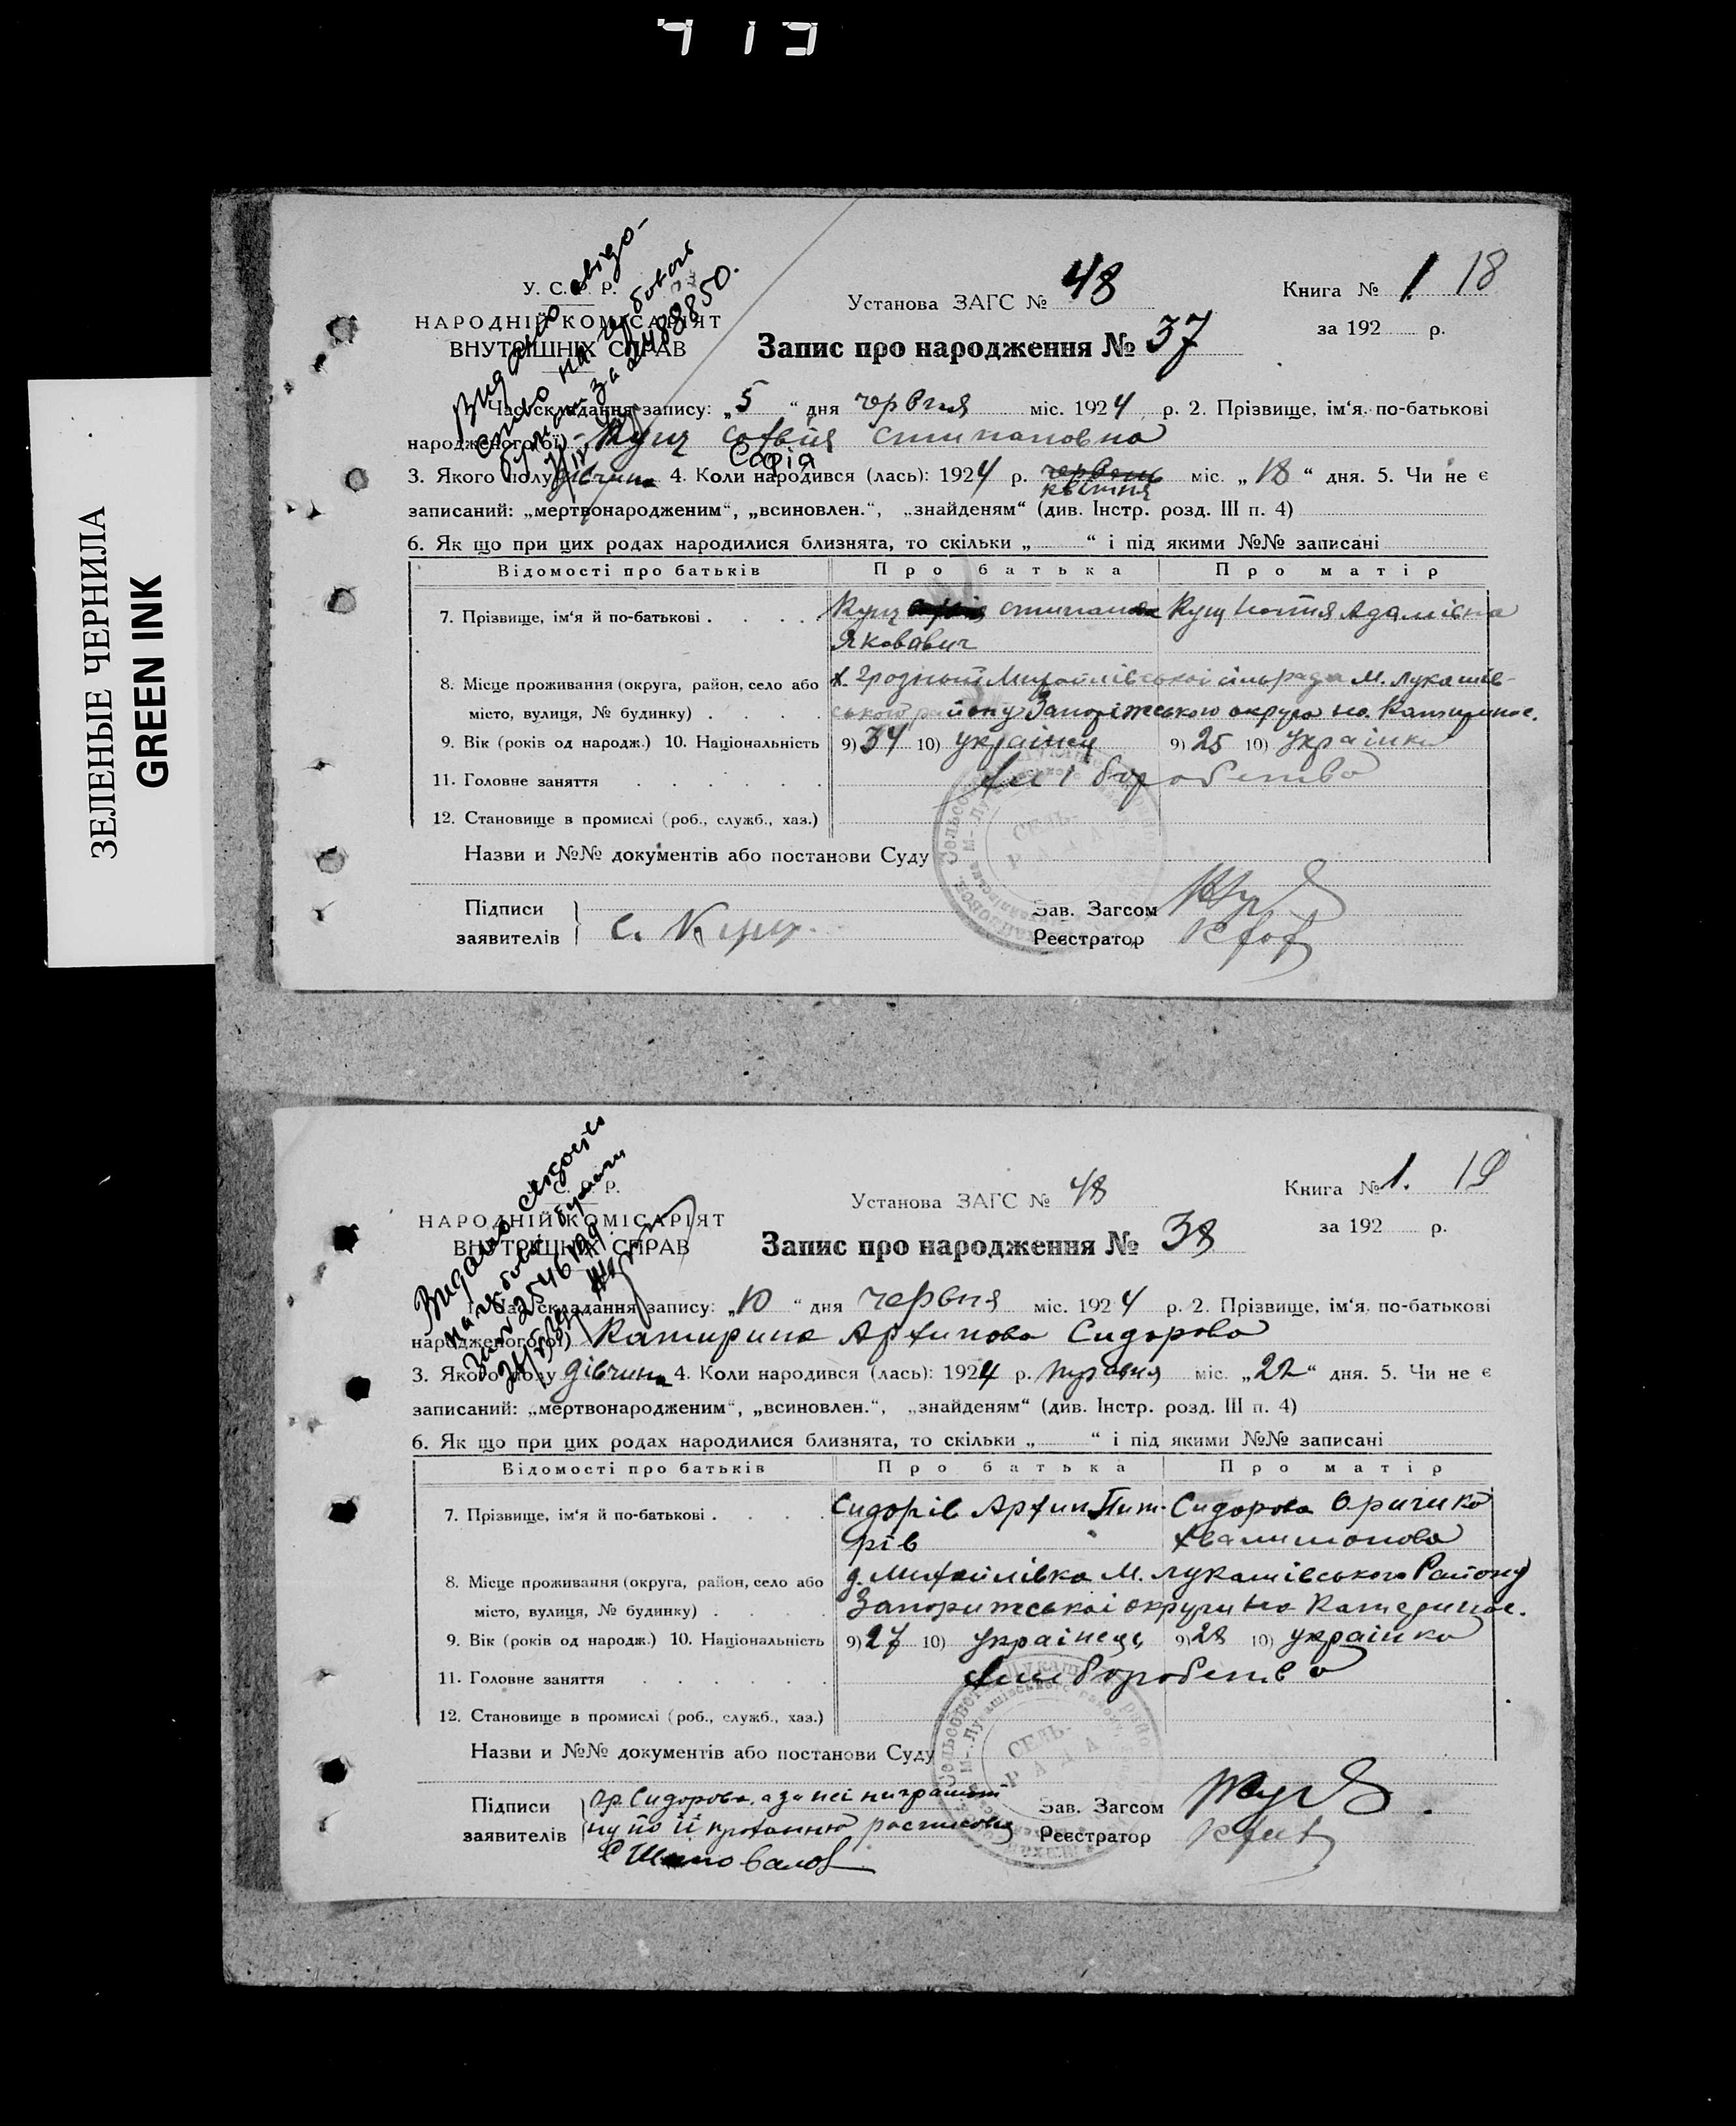 419
ЗЕЛЕНЫЕ ЧЕРНИЛА
GREEN INK
У. С. Р. Р.
НАРОДНІЙ КОМІСАРІЯТ
ВНУТРІШНІХ СПРАВ
Установа ЗАГС № 48
Книга № 1 18
за 192 р.
Запис про народження № 37
Час складання запису: „5“ дня червня міс. 1924 р. 2. Прізвище, ім‘я, по-батькові
народженого(ої) Кущ Софвія Стипановна
Софія
3. Якого полу дівчина 4. Коли народився (лась): 1924 р. червень міс. „18“ дня. 5. Чи не є
квітня
записаний: „мертвонародженим“, „всиновлен.“, „знайденям“ (див. Інстр. розд. III п. 4)
6. Як що при цих родах народилися близнята, то скільки „ “ і під якими №№ записані
Відомості про батьків Про батька Про матір
7. Прізвище, ім‘я й по-батькові . . . . Кущ Стипан Кущ Настя Адамівна
Яковавич
8. Місце проживання (округа, район, село або х. Грозный Михайлівської сільради М. Лукашів-
місто, вулиця, № будинку) . . . . ського району Запоріжського округа на Катиринос.
9. Вік (років од народж.) 10. Національність 9) 34 10) українец 9) 25 10) Українка
11. Головне заняття . . . . . . Хліборобство
12. Становище в промислі (роб., служб., хаз.)
Назви и №№ документів або постанови Суду
СЕЛЬ-
РАДА
Підписи
заявителів С. Кущ.
Зав. Загсом
Реєстратор
С. Р.
НАРОДНІЙ КОМІСАРІЯТ
ВНУТРІШНІХ СПРАВ
Установа ЗАГС № 48
Книга № 1. 19
за 192 р.
Запис про народження № 38
Час складання запису: „10“ дня червня міс. 1924 р. 2. Прізвище, ім‘я, по-батькові
народженого(ої) Катирина Архипова Сидорова
3. Якого полу дівчина 4. Коли народився (лась): 1924 р. травня міс. „22“ дня. 5. Чи не є
записаний: „мертвонародженим“, „всиновлен.“, „знайденям“ (див. Інстр. розд. III п. 4)
6. Як що при цих родах народилися близнята, то скільки „ “ і під якими №№ записані
Відомості про батьків Про батька Про матір
7. Прізвище, ім‘я й по-батькові . . . . Сидорів Архип Пит- Сидорова Оричка
рів Хвалимонова
8. Місце проживання (округа, район, село або д. Михайлівка М. Лукашівського Району
місто, вулиця, № будинку) . . . . Запорижської округи на Катеринос.
9. Вік (років од народж.) 10. Національність 9) 27 10) Українець 9) 28 10) українка
11. Головне заняття . . . . . . Хлиборобство
12. Становище в промислі (роб., служб., хаз.)
Назви и №№ документів або постанови Суду
СЕЛЬ-
РАДА
Підписи гр Сидорова, а за неї ниграмот
заявителів ну по її проханню росписовц
Шаповалов
Зав. Загсом
Реєстратор